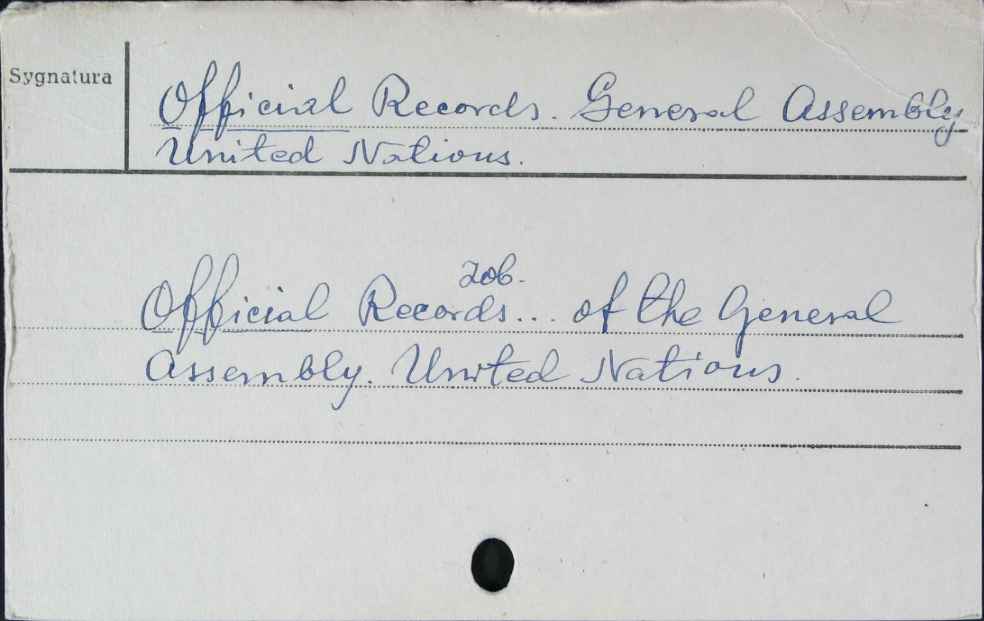 Sygnatura
Official Records. General Assembly
United Nations.
zob.
Official Records... of the General
Assembly. United Nations.